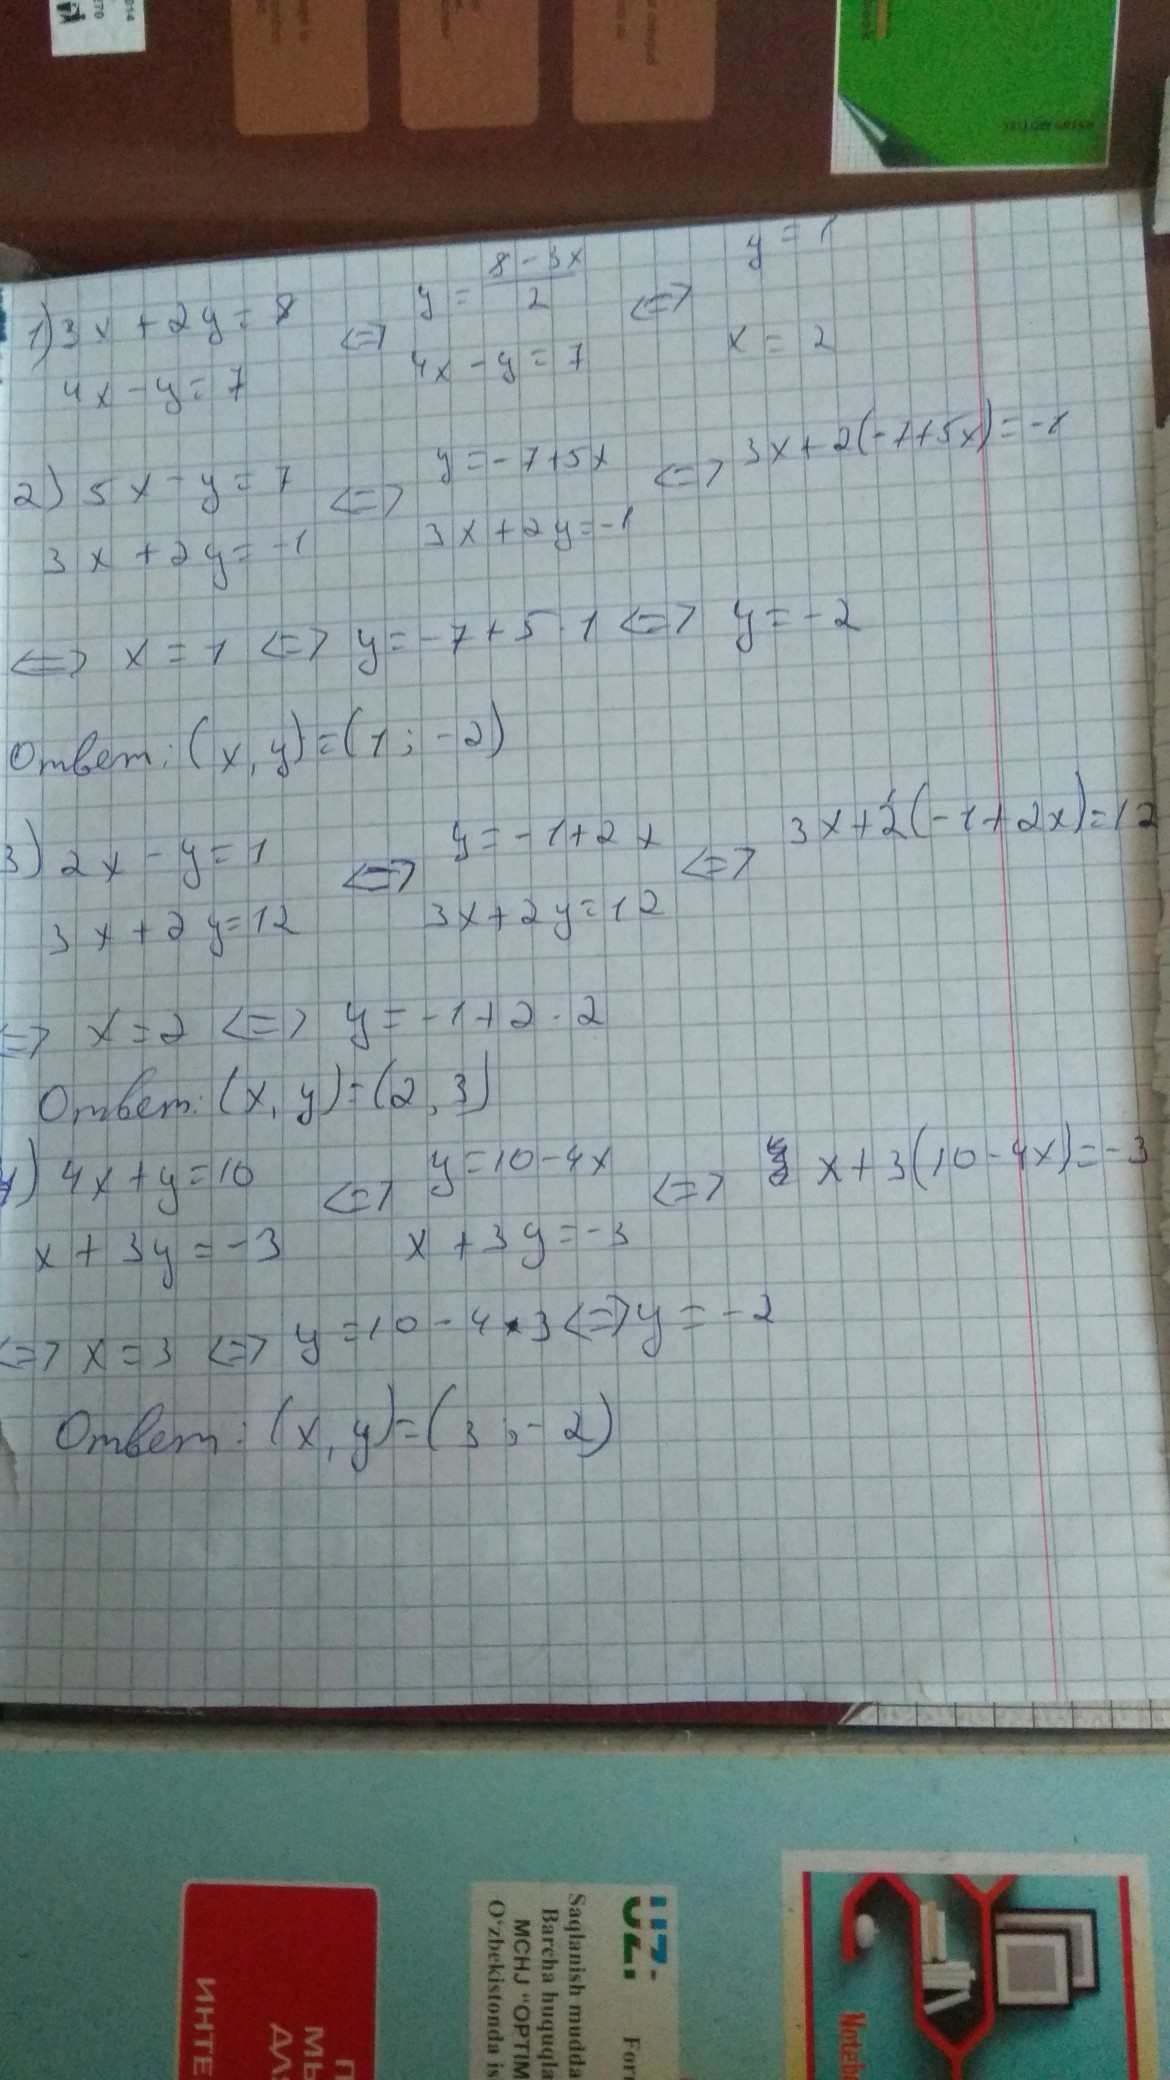 1) 3x + 2y = 8 <=> y = (8 - 3x)/2 <=> y = 1
4x - y = 7 4x - y = 7 x = 2
2) 5x - y = 7 <=> y = -7+5x <=> 3x + 2(-7+5x) = -1
3x + 2y = -1 3x + 2y = -1
<=> x = 1 <=> y = -7 + 5 · 1 <=> y = -2
Ответ: (x, y) = (1 ; -2)
3) 2x - y = 1 <=> y = -1+2x <=> 3x + 2(-1+2x) = 12
3x + 2y = 12 3x + 2y = 12
=> x = 2 <=> y = -1 + 2 · 2
Ответ: (x, y) = (2, 3)
4) 4x + y = 10 <=> y = 10 - 4x <=> x + 3(10 - 4x) = -3
x + 3y = -3 x + 3y = -3
<=> x = 3 <=> y = 10 - 4 · 3 <=> y = -2
Ответ: (x, y) = (3 ; -2)
ИНТЕ
МЫ
ДЛЯ
UZ.
Form
Saqlanish mudda
Barcha huquqla
MCHJ "OPTIM
O'zbekistonda is
Noteb